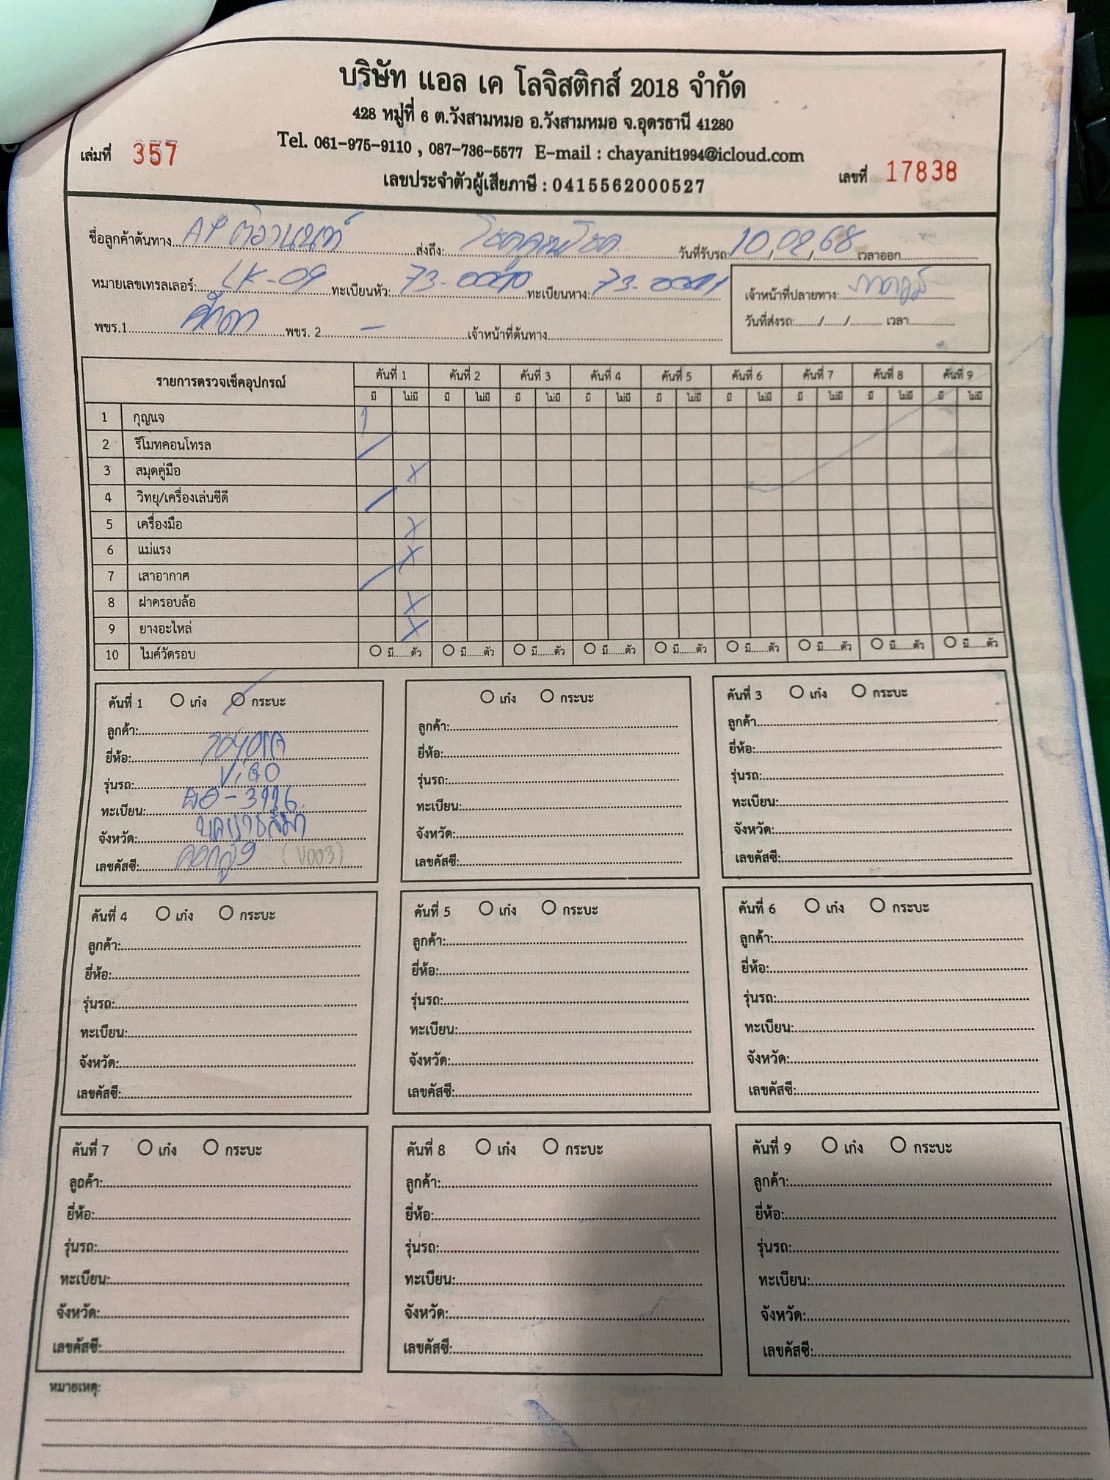 บริษัท แอล เค โลจิสติกส์ 2018 จำกัด
428 หมู่ที่ 6 ต.วังสามหมอ อ.วังสามหมอ จ.อุดรธานี 41280
เล่มที่ 357 Tel. 061-975-9110 , 087-736-5577 E-mail : chayanit1994@icloud.com
เลขประจำตัวผู้เสียภาษี : 0415562000527 เลขที่ 17838
ชื่อลูกค้าต้นทาง AP ติวานนท์ ส่งถึง: โชคคูณโชค วันที่รับรถ 10/02/68 เวลาออก
หมายเลขเทรลเลอร์: LK-09 ทะเบียนหัว: 73- ทะเบียนหาง: 73- เจ้าหน้าที่ปลายทาง:
พขร.1 พขร. 2 - เจ้าหน้าที่ต้นทาง วันที่ส่งรถ: / / เวลา
รายการตรวจเช็คอุปกรณ์ คันที่ 1 คันที่ 2 คันที่ 3 คันที่ 4 คันที่ 5 คันที่ 6 คันที่ 7 คันที่ 8 คันที่ 9
มี ไม่มี มี ไม่มี มี ไม่มี มี ไม่มี มี ไม่มี มี ไม่มี มี ไม่มี มี ไม่มี มี ไม่มี
1 กุญแจ 1
2 รีโมทคอนโทรล /
3 สมุดคู่มือ X
4 วิทยุ/เครื่องเล่นซีดี /
5 เครื่องมือ X
6 แม่แรง X
7 เสาอากาศ /
8 ฝาครอบล้อ X
9 ยางอะไหล่ X
10 ไมค์วัดรอบ มี ตัว มี ตัว มี ตัว มี ตัว มี ตัว มี ตัว มี ตัว มี ตัว มี ตัว
คันที่ 1 เก๋ง กระบะ
ลูกค้า:
ยี่ห้อ: TOYOTA
รุ่นรถ: VIGO
ทะเบียน:
จังหวัด: นครราชสีมา
เลขคัสซี: (V003)
เก๋ง กระบะ
ลูกค้า:
ยี่ห้อ:
รุ่นรถ:
ทะเบียน:
จังหวัด:
เลขคัสซี:
คันที่ 3 เก๋ง กระบะ
ลูกค้า
ยี่ห้อ:
รุ่นรถ:
ทะเบียน:
จังหวัด:
เลขคัสซี:
คันที่ 4 เก๋ง กระบะ
ลูกค้า:
ยี่ห้อ:
รุ่นรถ:
ทะเบียน:
จังหวัด:
เลขคัสซี:
คันที่ 5 เก๋ง กระบะ
ลูกค้า:
ยี่ห้อ:
รุ่นรถ:
ทะเบียน:
จังหวัด:
เลขคัสซี:
คันที่ 6 เก๋ง กระบะ
ลูกค้า:
ยี่ห้อ:
รุ่นรถ:
ทะเบียน:
จังหวัด:
เลขคัสซี:
คันที่ 7 เก๋ง กระบะ
ลูกค้า:
ยี่ห้อ:
รุ่นรถ:
ทะเบียน:
จังหวัด:
เลขคัสซี:
คันที่ 8 เก๋ง กระบะ
ลูกค้า:
ยี่ห้อ:
รุ่นรถ:
ทะเบียน:
จังหวัด:
เลขคัสซี:
คันที่ 9 เก๋ง กระบะ
ลูกค้า:
ยี่ห้อ:
รุ่นรถ:
ทะเบียน:
จังหวัด:
เลขคัสซี:
หมายเหตุ: